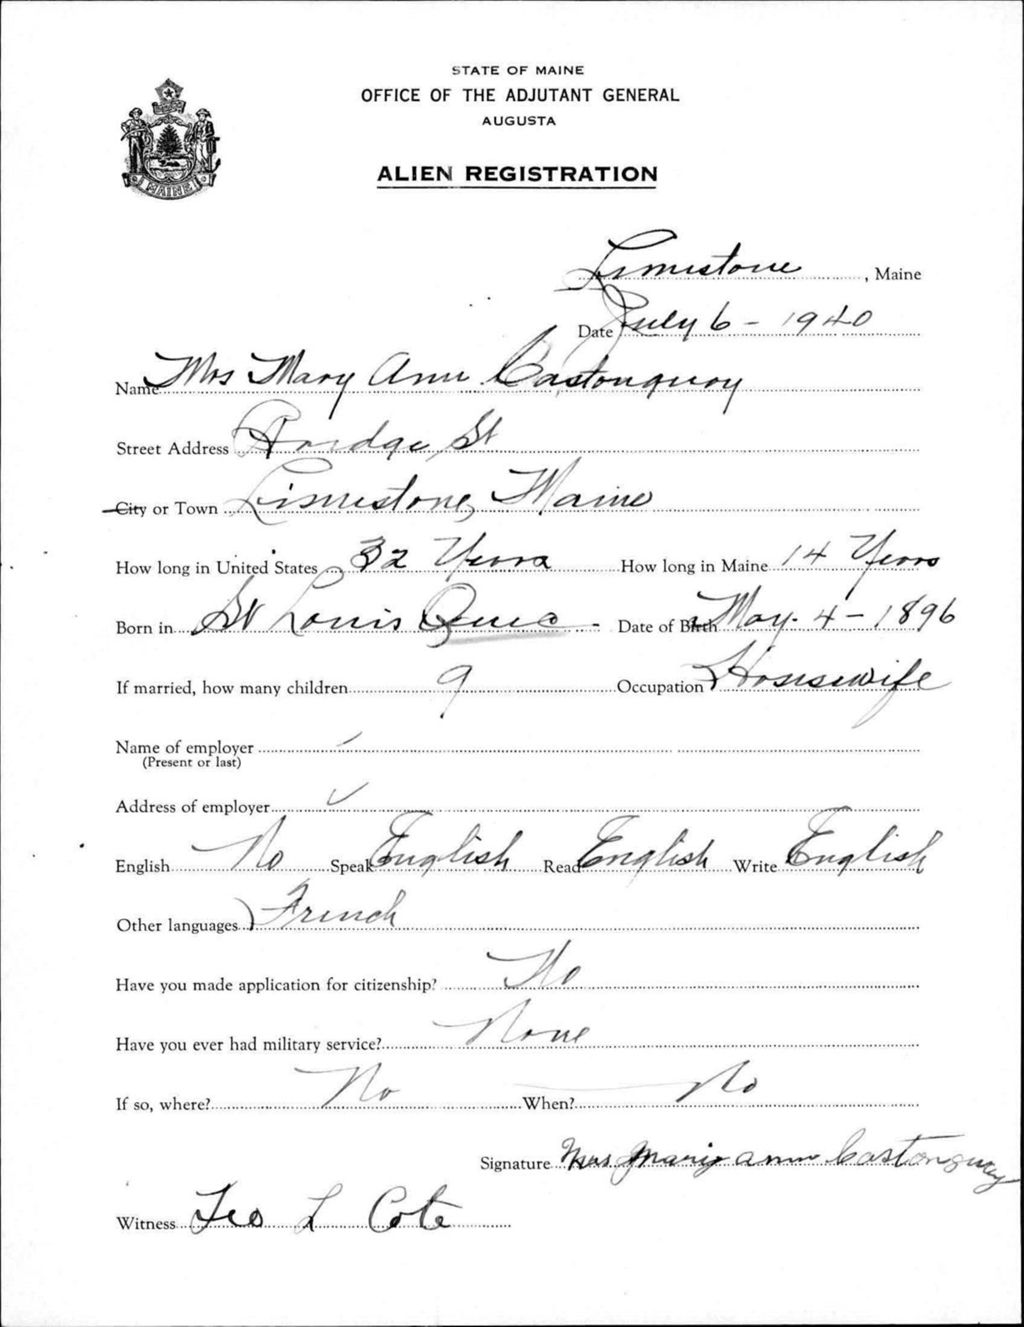 STATE OF MAINE
OFFICE OF THE ADJUTANT GENERAL
AUGUSTA
MAINE
ALIEN REGISTRATION
Limestone, Maine
Date July 6 - 1940
Name Mrs Mary Ann Castonguay
Street Address St
City or Town Limestone, Maine
How long in United States 32 Years How long in Maine 14 Years
Born in St Louis Quec Date of Birth May. 4 - 1896
If married, how many children 9 Occupation Housewife
Name of employer
(Present or last)
Address of employer
English No Speak English Read English Write English
Other languages French
Have you made application for citizenship? No
Have you ever had military service? None
If so, where? No When? No
Signature Mrs Mary ann Castonguay
Witness L Cote